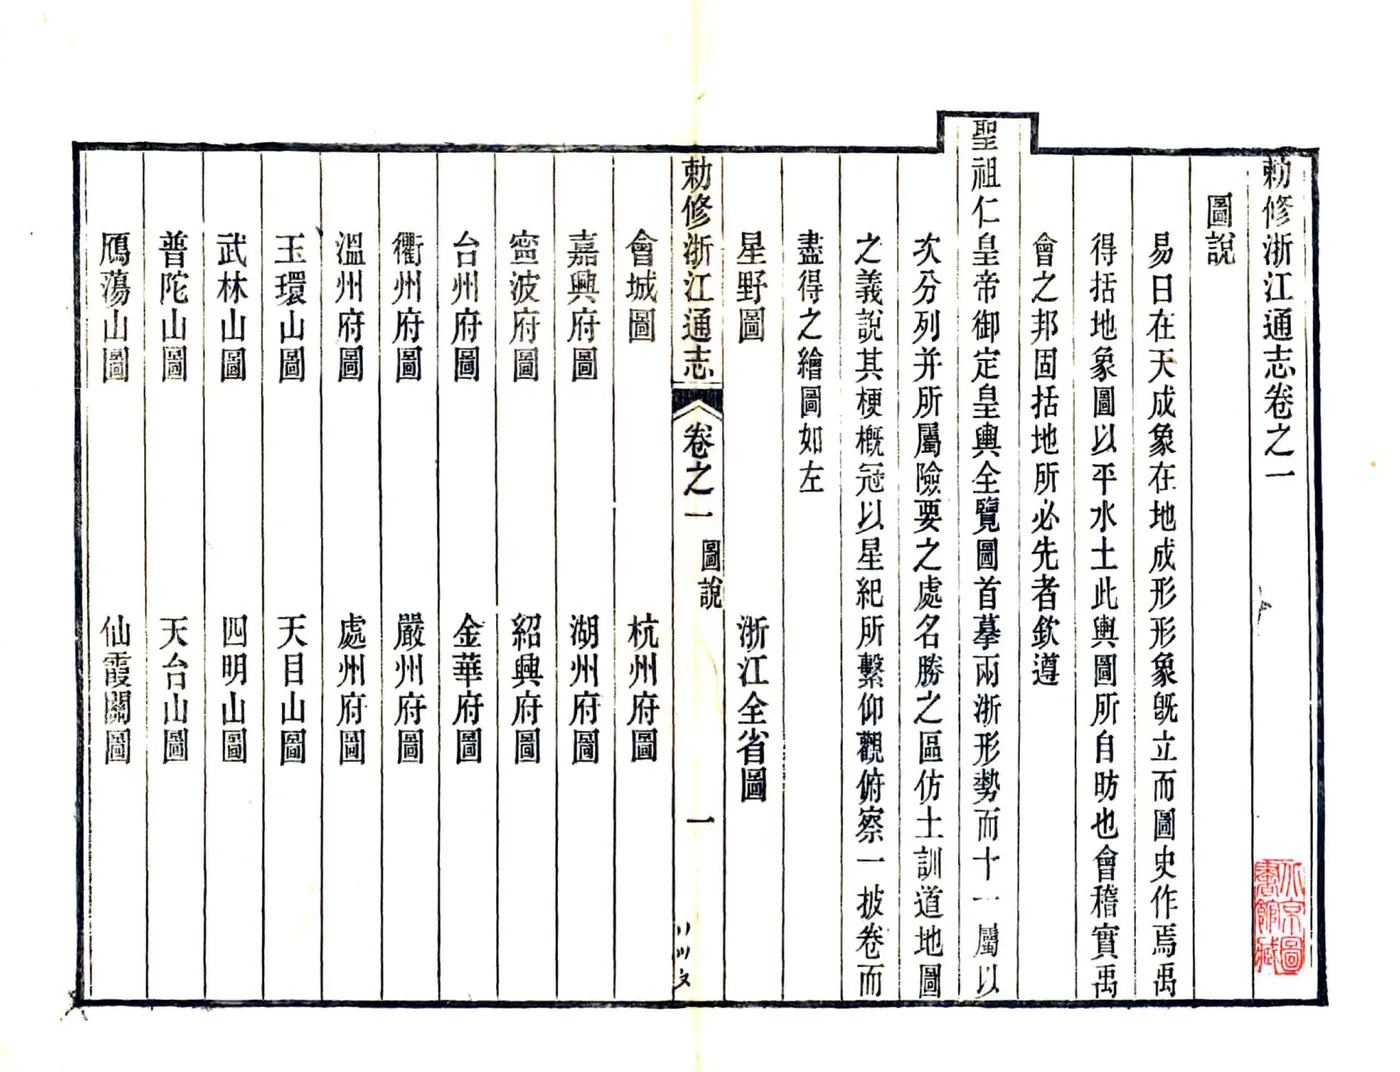 勅修浙江通志卷之一
圖說
易曰在天成象在地成形形象旣立而圖史作焉禹
得括地象圖以平水土此輿圖所自昉也會稽實禹
會之邦固括地所必先者欽遵
聖祖仁皇帝御定皇輿全覽圖首摹兩浙形勢而十一屬以
次分列并所屬險要之處名勝之區仿土訓道地圖
之義說其梗槪冠以星紀所繫仰觀俯察一披卷而
盡得之繪圖如左
星野圖 浙江全省圖
勅修浙江通志 卷之一 圖說 一
會城圖 杭州府圖
嘉興府圖 湖州府圖
寧波府圖 紹興府圖
台州府圖 金華府圖
衢州府圖 嚴州府圖
溫州府圖 處州府圖
玉環山圖 天目山圖
武林山圖 四明山圖
普陀山圖 天台山圖
鴈蕩山圖 仙霞關圖
北京圖書館藏